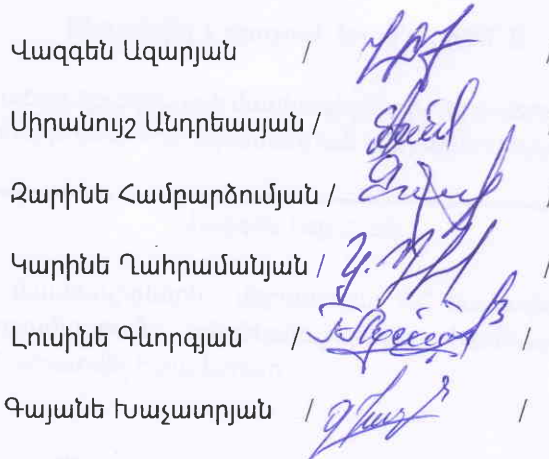 Վազգեն Ազարյան / /
Սիրանույշ Անդրեասյան / /
Զարինե Համբարձումյան / /
Կարինե Ղահրամանյան / /
Լուսինե Գևորգյան / /
Գայանե Խաչատրյան / /